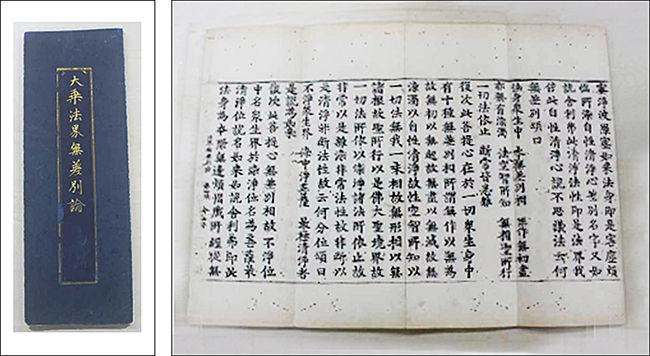 大乘法界無差別論
淨波羅蜜如來法身即是客塵煩
惱所染自性清淨心差別名字又如
說舍利弗此清淨法性即是法界我
依此自性清淨心說不思議法云何
無差別頌曰
法身衆生中 本無差別相 無作無初盡
亦無有染濁 法空智所知 無相聖所行
一切法依止 斷常皆悉離
復次此菩提心在於一切衆生身中
有十種無差別相所謂無作以無為
故無初以無起故無盡以無滅故無
染濁以自性清淨故性空智所知以
一切法無我一味相故無形相以無
諸根故聖所行以是佛大聖境界故
一切法所依以染淨諸法所依止故
非常以是雜染非常法性故非斷以
是清淨非斷法性故云何分位頌曰
不淨衆生界 染中淨菩薩 最極清淨者
是說為如來
復次此菩提心無差別相故不淨位
中名衆生界於染淨位名為菩薩最
清淨位說名如來如說舍利弗即此
法身為本際無邊煩惱藏所纏從無